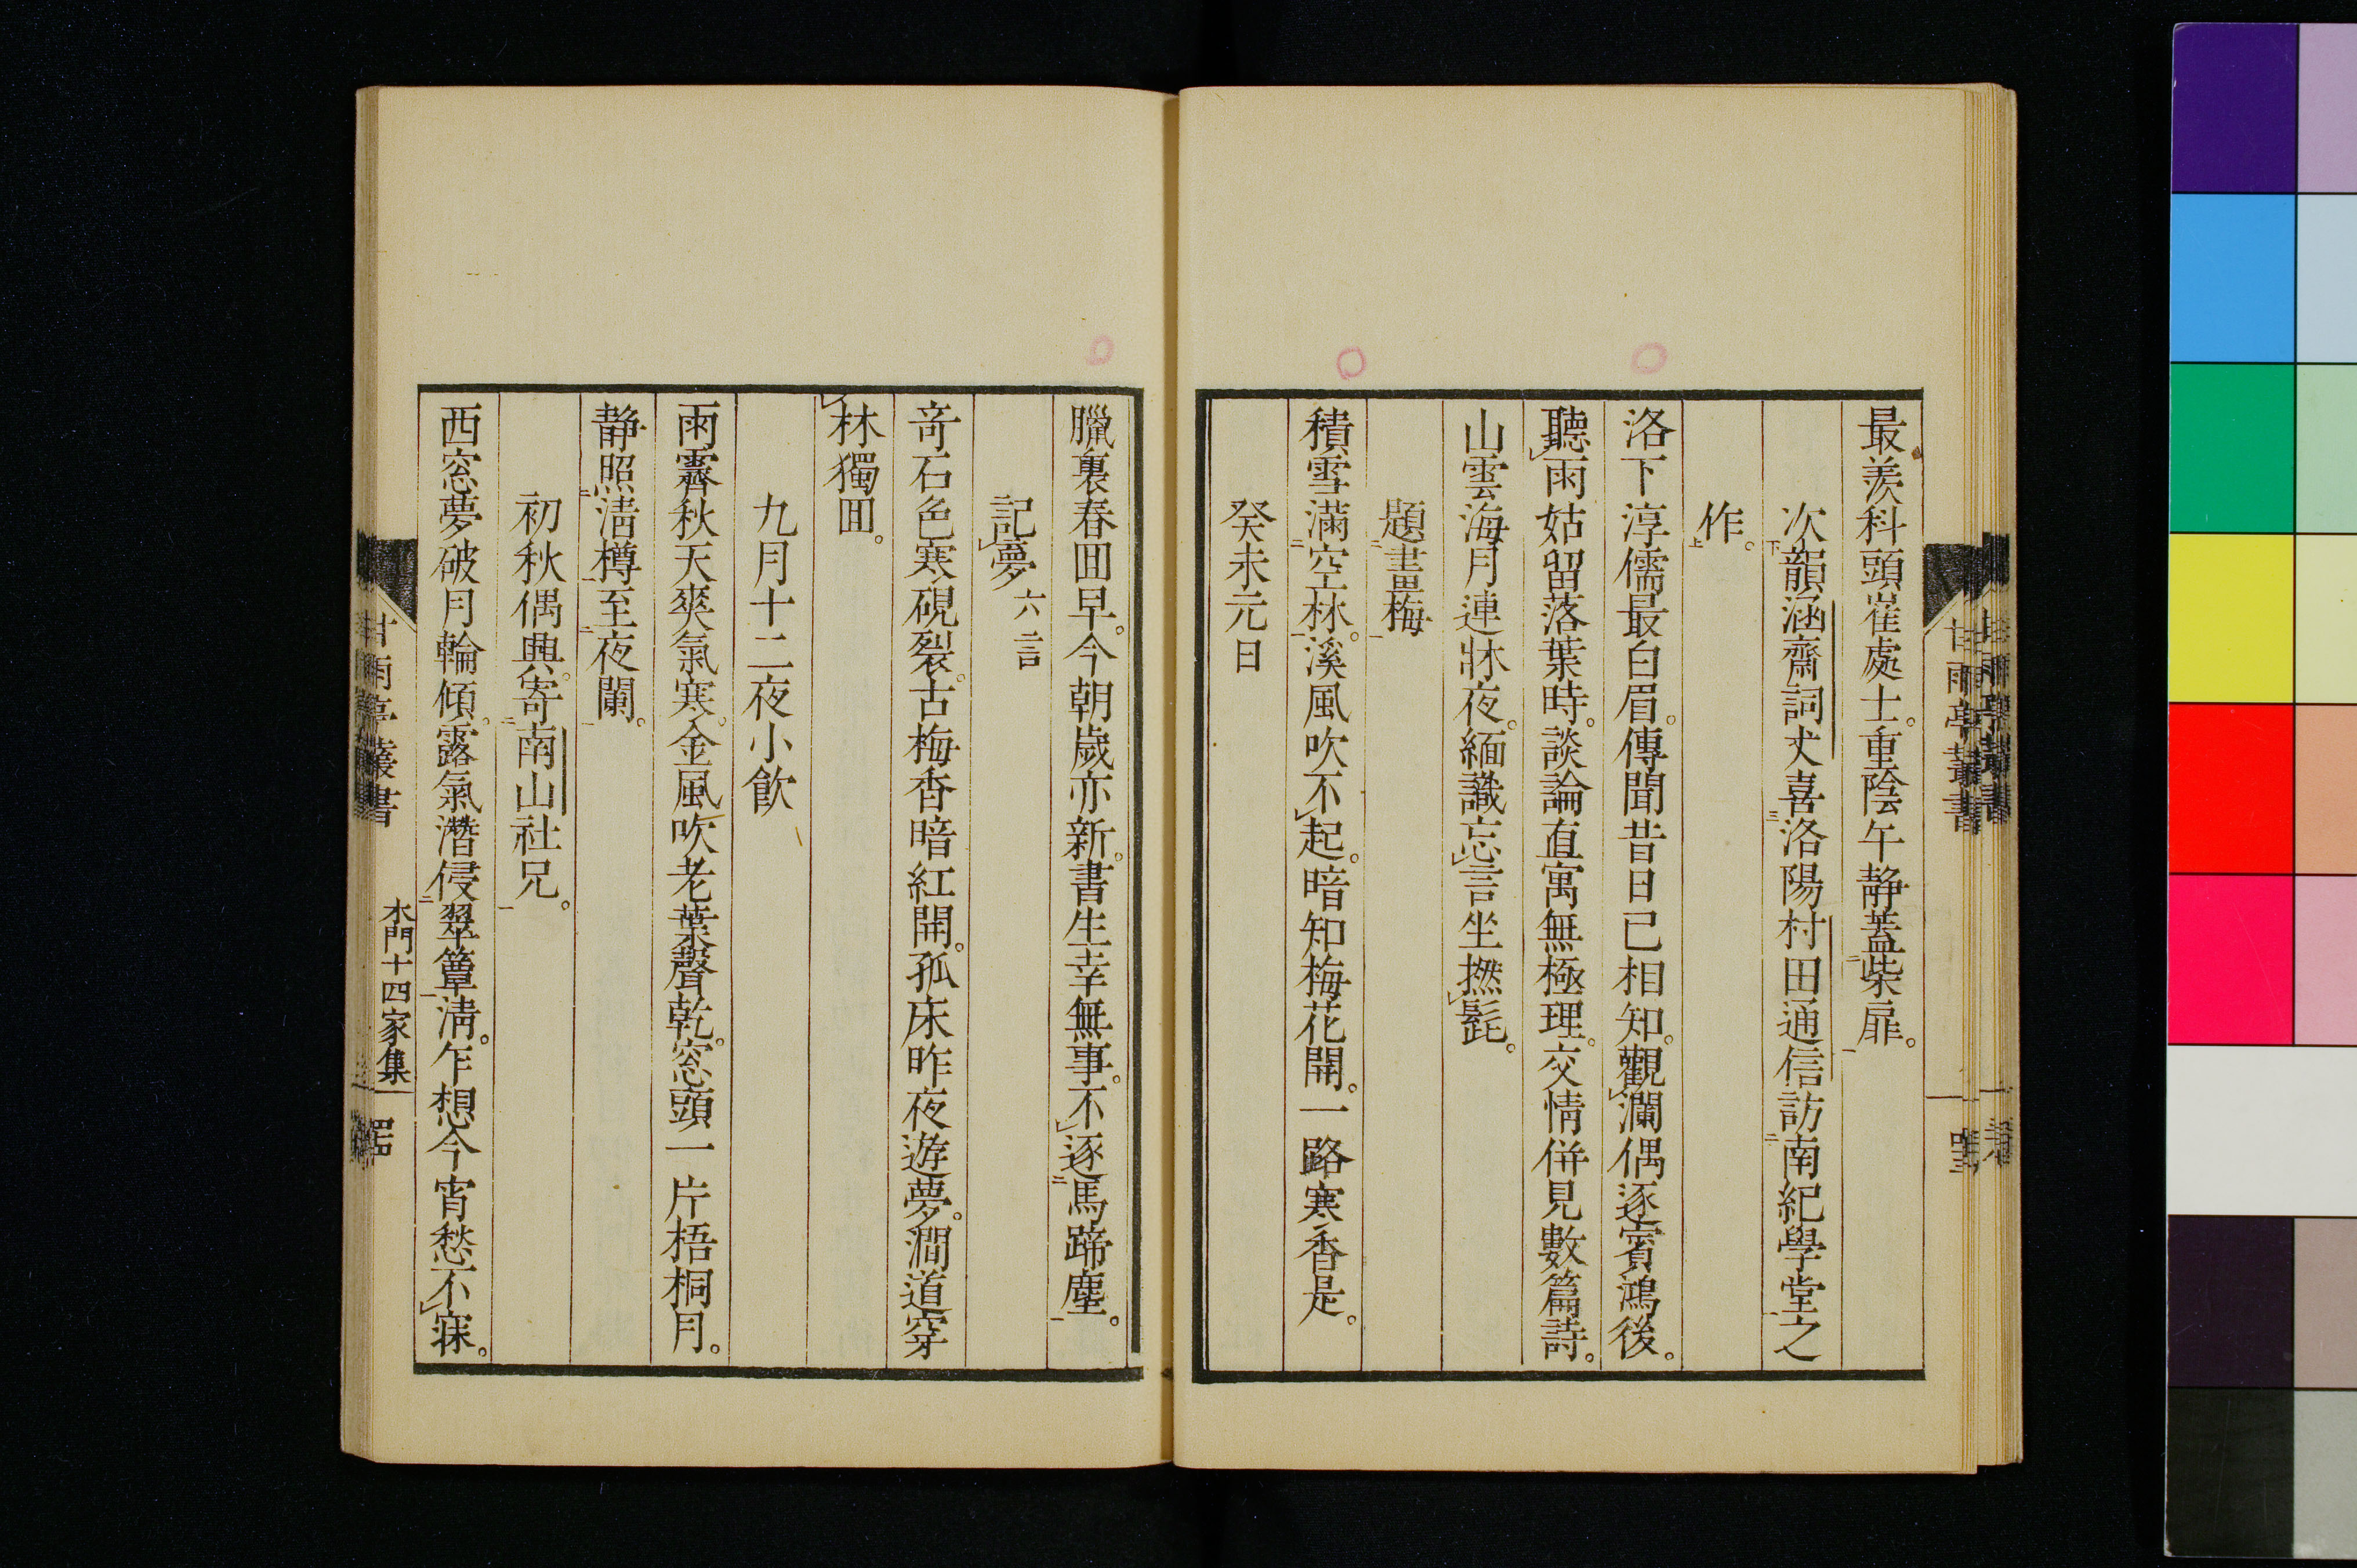 最羨科頭崔處士。重陰午靜蓋二柴扉一。
次下韻涵齋詞丈喜三洛陽村田通信訪二南紀學堂一之
作上。
洛下淳儒最白眉。傳聞昔日已相知。觀レ瀾偶逐賓鴻後。
聽レ雨姑留落葉時。談論直寓無極理。交情併見數篇詩。
山雲海月連牀夜。緬識忘レ言坐撚レ髭。
題二畫梅一
積雪滿二空林一。溪風吹不レ起。暗知梅花開。一路寒香是。
癸未元日
臘裏春囬早。今朝歲亦新。書生幸無事。不レ逐二馬蹄塵一。
記レ夢六言
奇石色寒硯裂。古梅香暗紅開。孤床昨夜遊夢。澗道穿レ
林獨囬。
九月十二夜小飲
雨霽秋天爽氣寒。金風吹老葉聲乾。窓頭一片梧桐月。
靜照二清樽一至二夜闌一。
初秋偶興。寄二南山社兄一。
西窓夢破月輪傾。露氣潛侵二翠簟一清。乍想今宵愁不レ寐。
甘雨亭叢書
木門十四家集